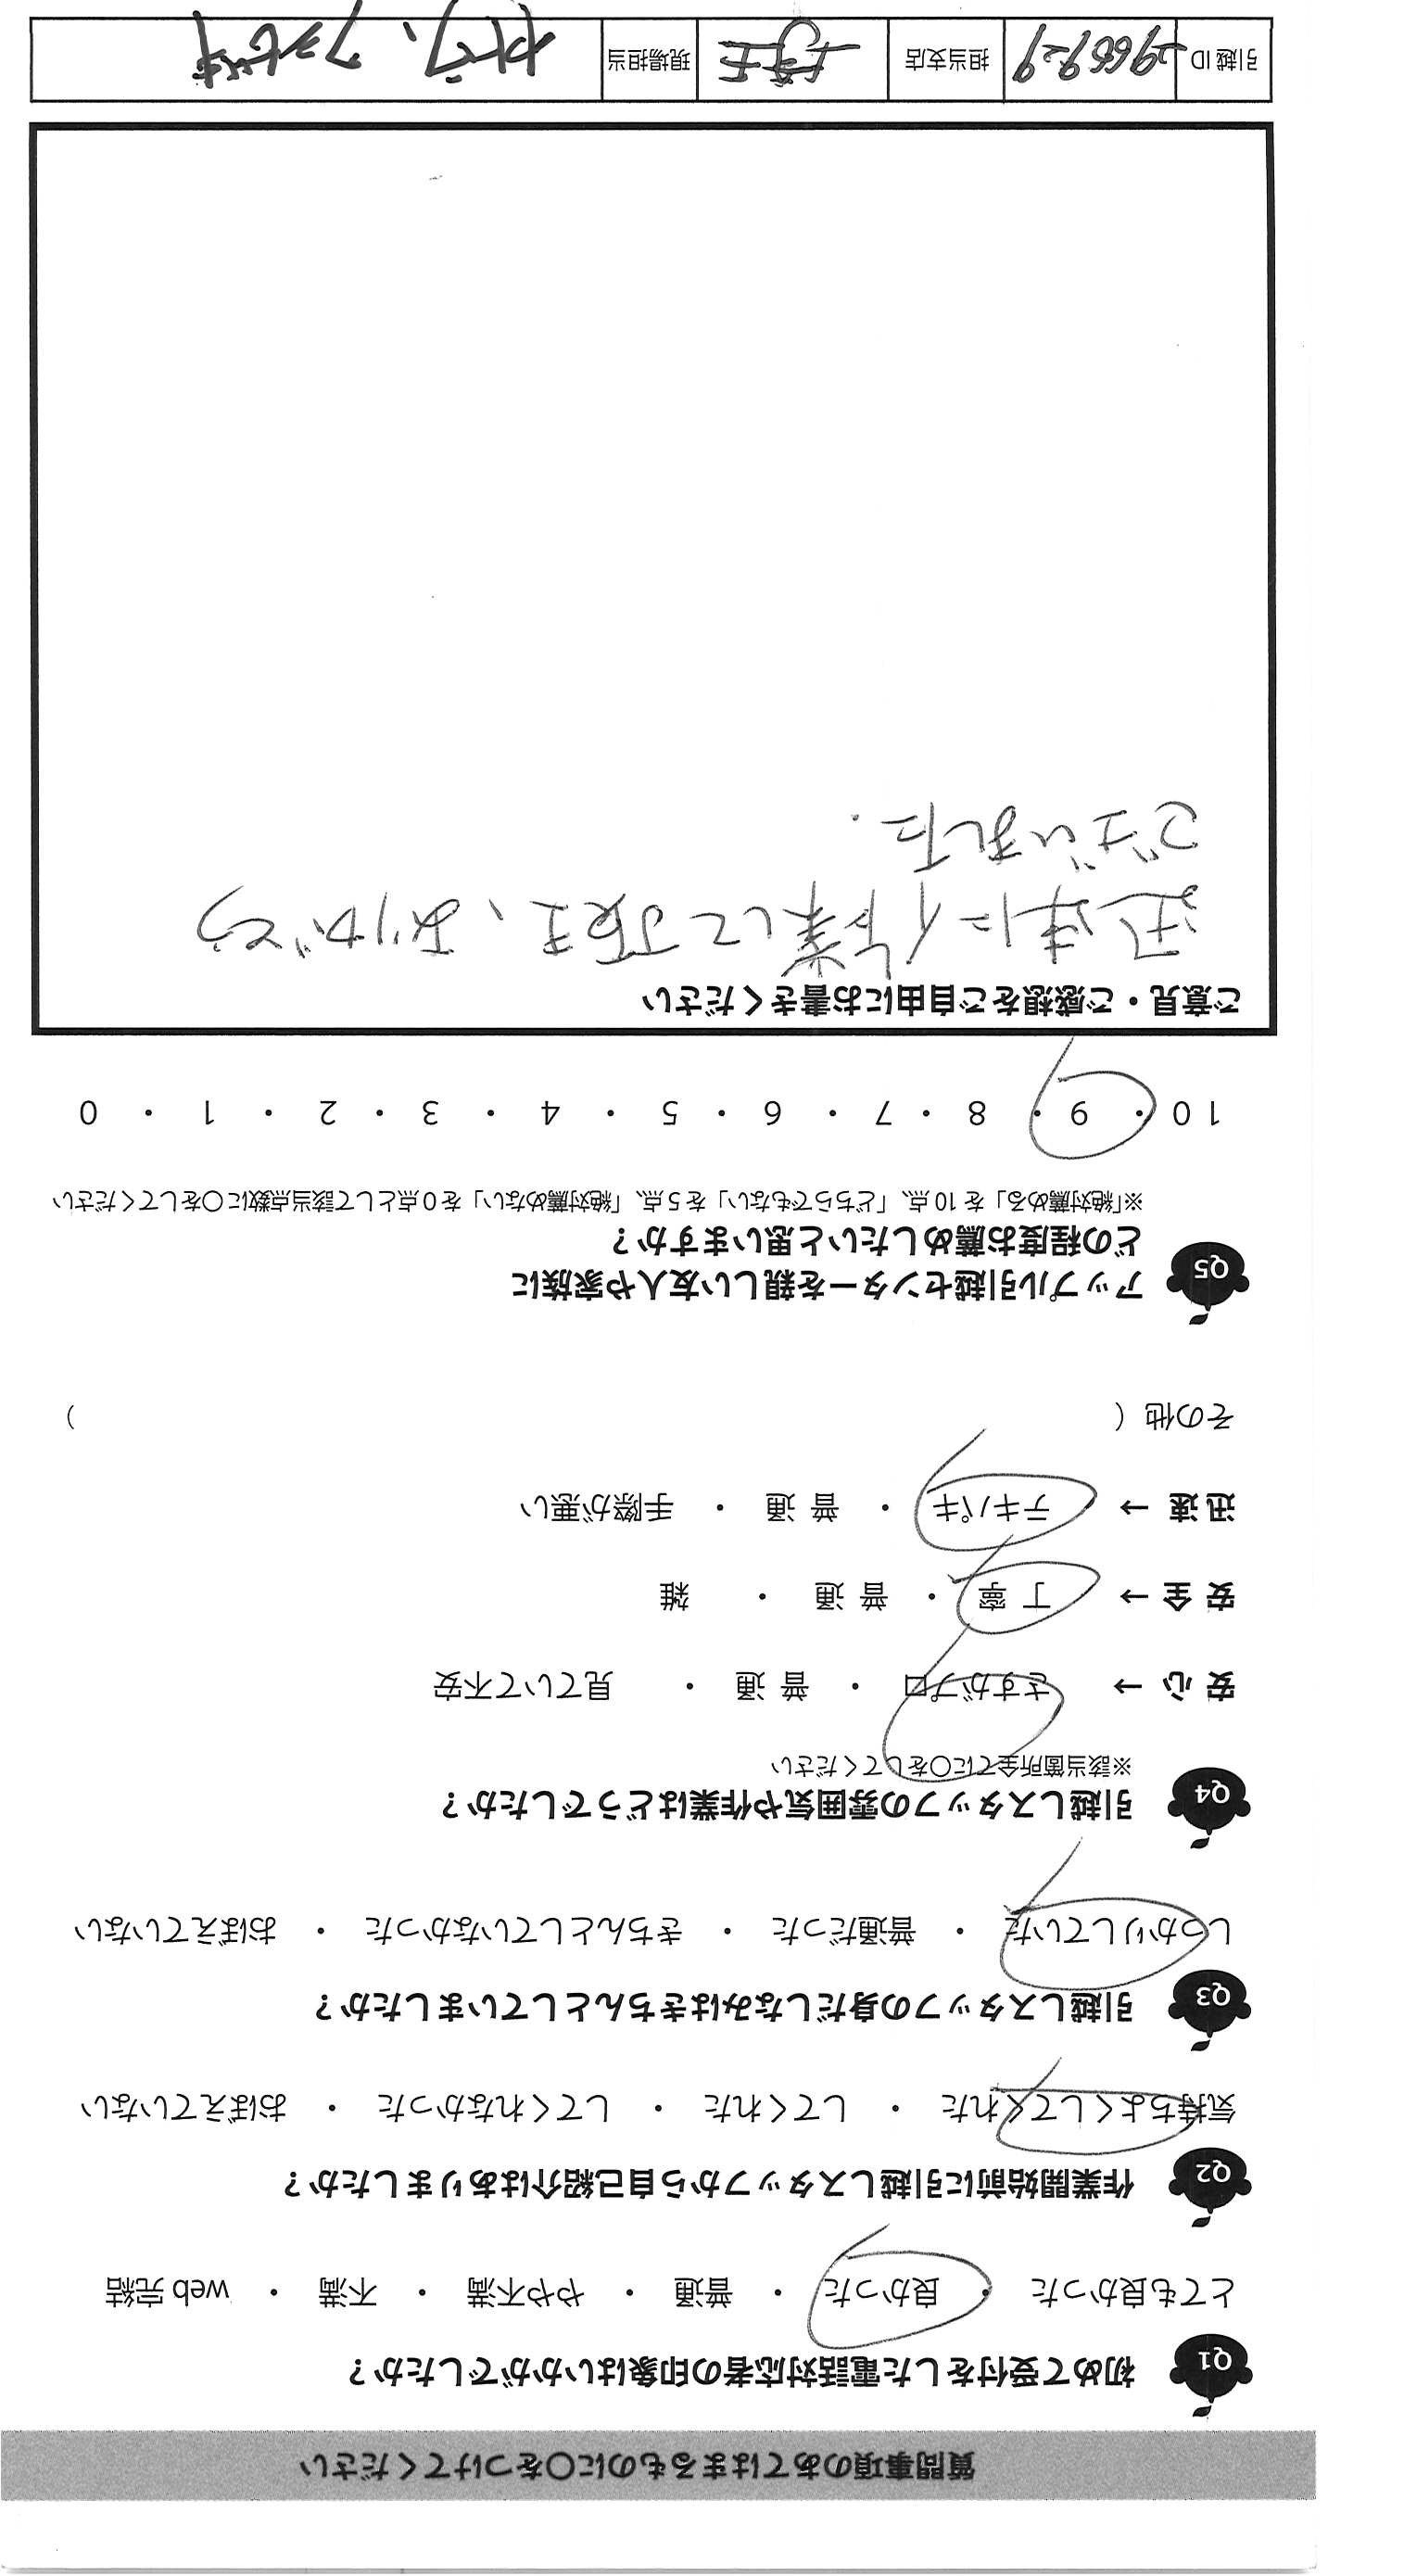 質問事項のあてはまるものに〇をつけてください
Q1 初めて受付をした電話対応者の印象はいかがでしたか？
とても良かった ・ 良かった ・ 普通 ・ やや不満 ・ 不満 ・ web 完結
Q2 作業開始前に引越しスタッフから自己紹介はありましたか？
気持ちよくしてくれた ・ してくれた ・ してくれなかった ・ おぼえていない
Q3 引越しスタッフの身だしなみはきちんとしていましたか？
しっかりしていた ・ 普通だった ・ きちんとしていなかった ・ おぼえていない
Q4 引越しスタッフの雰囲気や作業はどうでしたか？
※該当箇所全てに〇をしてください
安 心 → さすがプロ ・ 普 通 ・ 見ていて不安
安 全 → 丁 寧 ・ 普 通 ・ 雑
迅 速 → テキパキ ・ 普 通 ・ 手際が悪い
その他（ ）
Q5 アップル引越センターを親しい友人や家族に
どの程度お薦めしたいと思いますか？
※「絶対薦める」を 10 点、「どちらでもない」を 5 点、「絶対薦めない」を 0 点として該当点数に〇をしてください
10 ・ 9 ・ 8 ・ 7 ・ 6 ・ 5 ・ 4 ・ 3 ・ 2 ・ 1 ・ 0
ご意見・ご感想をご自由にお書きください
迅速に作業して頂き、ありがとう
ございました.
引越 ID 担当支店 埼玉 現場担当